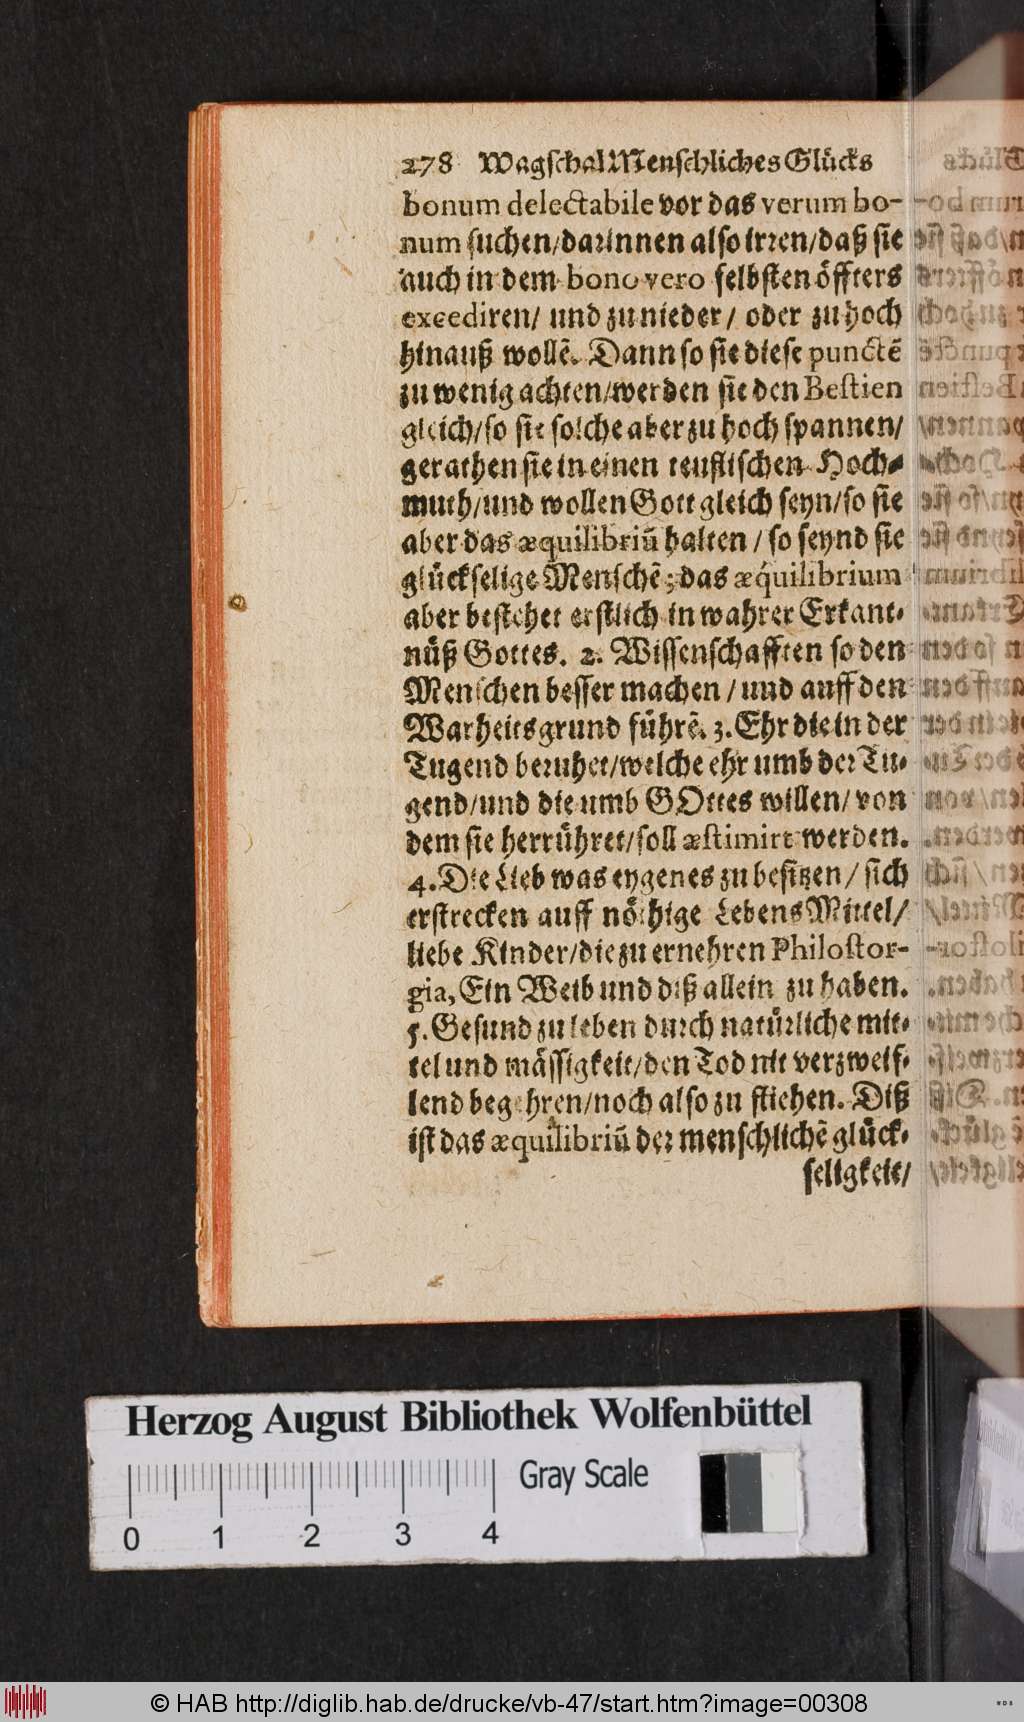 278 Wagschal Menschliches Glücks
bonum delectabile vor das verum bo-
num suchen/darinnen also irren/daß sie
auch in dem bono vero selbsten öffters
excediren/ und zu nieder/ oder zu hoch
hinauß wollē. Dann so sie diese punctē
zu wenig achten/werden sie den Bestien
gleich/so sie solche aber zu hoch spannen/
gerathen sie in einen teuflischen Hoch-
muth/und wollen Gott gleich seyn/so sie
aber das æquilibriū halten / so seynd sie
glückselige Menschē; das æquilibrium
aber bestehet erstlich in wahrer Erkant-
nüß Gottes. 2. Wissenschafften so den
Menschen besser machen / und auff den
Warheitsgrund führē. 3. Ehr die in der
Tugend beruhet/welche ehr umb der Tu-
gend/und die umb GOttes willen/ von
dem sie herrühret/soll æstimirt werden.
4. Die Lieb was eygenes zu besitzen / sich
erstrecken auff nöthige Lebens Mittel/
liebe Kinder/die zu ernehren Philostor-
gia, Ein Weib und diß allein zu haben.
5. Gesund zu leben durch natürliche mit-
tel und mässigkeit/den Tod nit verzweif-
lend begehren/noch also zu fliehen. Diß
ist das æquilibriū der menschlichē glück-
seligkeit/
Herzog August Bibliothek Wolfenbüttel
Gray Scale
0 1 2 3 4
© HAB http://diglib.hab.de/drucke/vb-47/start.htm?image=00308